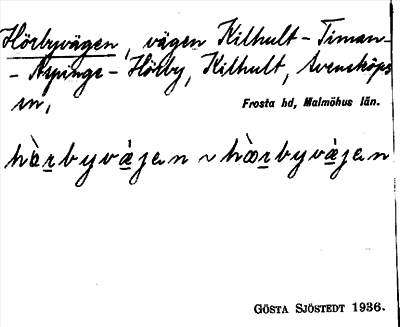 Hörbyvägen, vägen Kilhult – Timan-
– Äspinge – Hörby, Kilhult, Svensköps
sn,
Frosta hd, Malmöhus län.
hὰrbyvὰjen ~ hὰrbyvὰjen
GÖSTA SJÖSTEDT 1936.